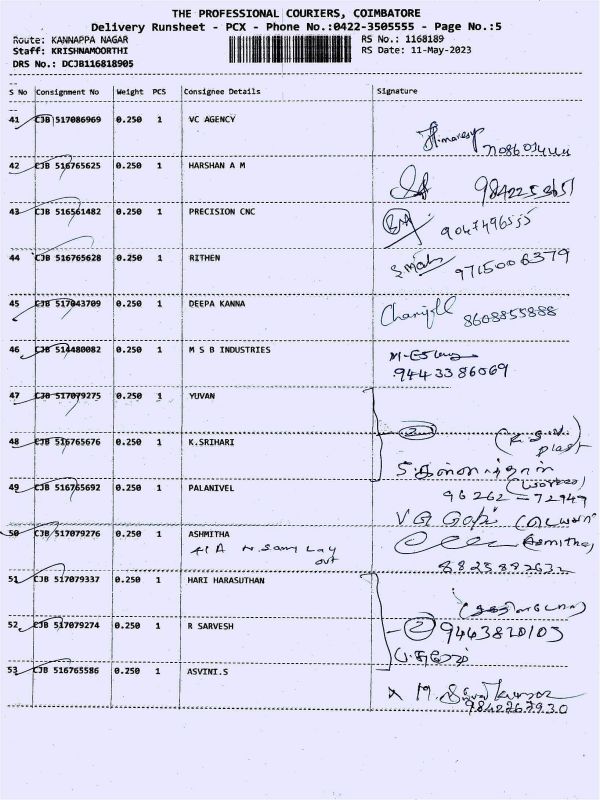 THE PROFESSIONAL COURIERS, COIMBATORE
Delivery Runsheet - PCX - Phone No.:0422-3505555 - Page No.:5
Route: KANNAPPA NAGAR RS No.: 1168189
Staff: KRISHNAMOORTHI RS Date: 11-May-2023
DRS No.: DCJB116818905
S No Consignment No Weight PCS Consignee Details Signature
41 CJB 517086969 0.250 1 VC AGENCY
42 CJB 516765625 0.250 1 HARSHAN A M
43 CJB 516561482 0.250 1 PRECISION CNC 9047496555
44 CJB 516765628 0.250 1 RITHEN 9715006379
45 CJB 517043709 0.250 1 DEEPA KANNA 8608855888
46 CJB 514480082 0.250 1 M S B INDUSTRIES
9443386069
47 CJB 517079275 0.250 1 YUVAN
48 CJB 516765676 0.250 1 K.SRIHARI
plast
49 CJB 516765692 0.250 1 PALANIVEL
96262-72949
50 CJB 517079276 0.250 1 ASHMITHA
out
51 CJB 517079337 0.250 1 HARI HARASUTHAN
52 CJB 517079274 0.250 1 R SARVESH 2 9443820103
53 CJB 516765586 0.250 1 ASVINI.S
9842267930